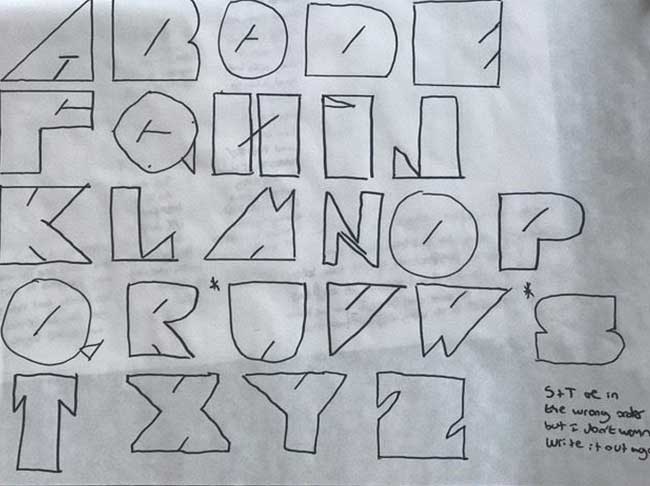 A B C D E
F G H I J
K L M N O P
Q R * U V W * S
T X Y Z
S+T are in
the wrong order
but I don't
write it out